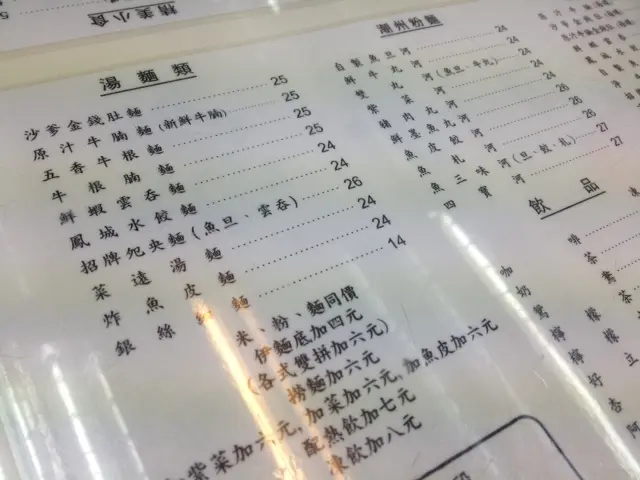 精美小食
5
湯麵類
沙爹金錢肚麵 25
原汁牛腩麵(新鮮牛腩) 25
五香牛根麵 25
牛根腩麵 25
鮮蝦雲吞麵 24
鳳城水餃麵 24
招牌怨央麵(魚旦、雲吞) 26
菜遠湯麵 24
炸魚皮麵 24
銀絲 麵 14
米、粉、麵同價
伊麵底加四元
(各式雙拼加六元)
撈麵加六元
加紫菜加六元,加菜加六元,加魚皮加六元
配熱飲加七元
凍飲加八元
潮州粉麵
自製魚旦河 24
鮮牛丸河 24
雙丸河(魚旦、牛丸) 24
紫菜河 24
豬肉丸河 24
鮮墨魚丸河 24
魚皮餃河 24
魚札河 24
魚三味河(旦、餃、札) 27
四寶河 27
飲品